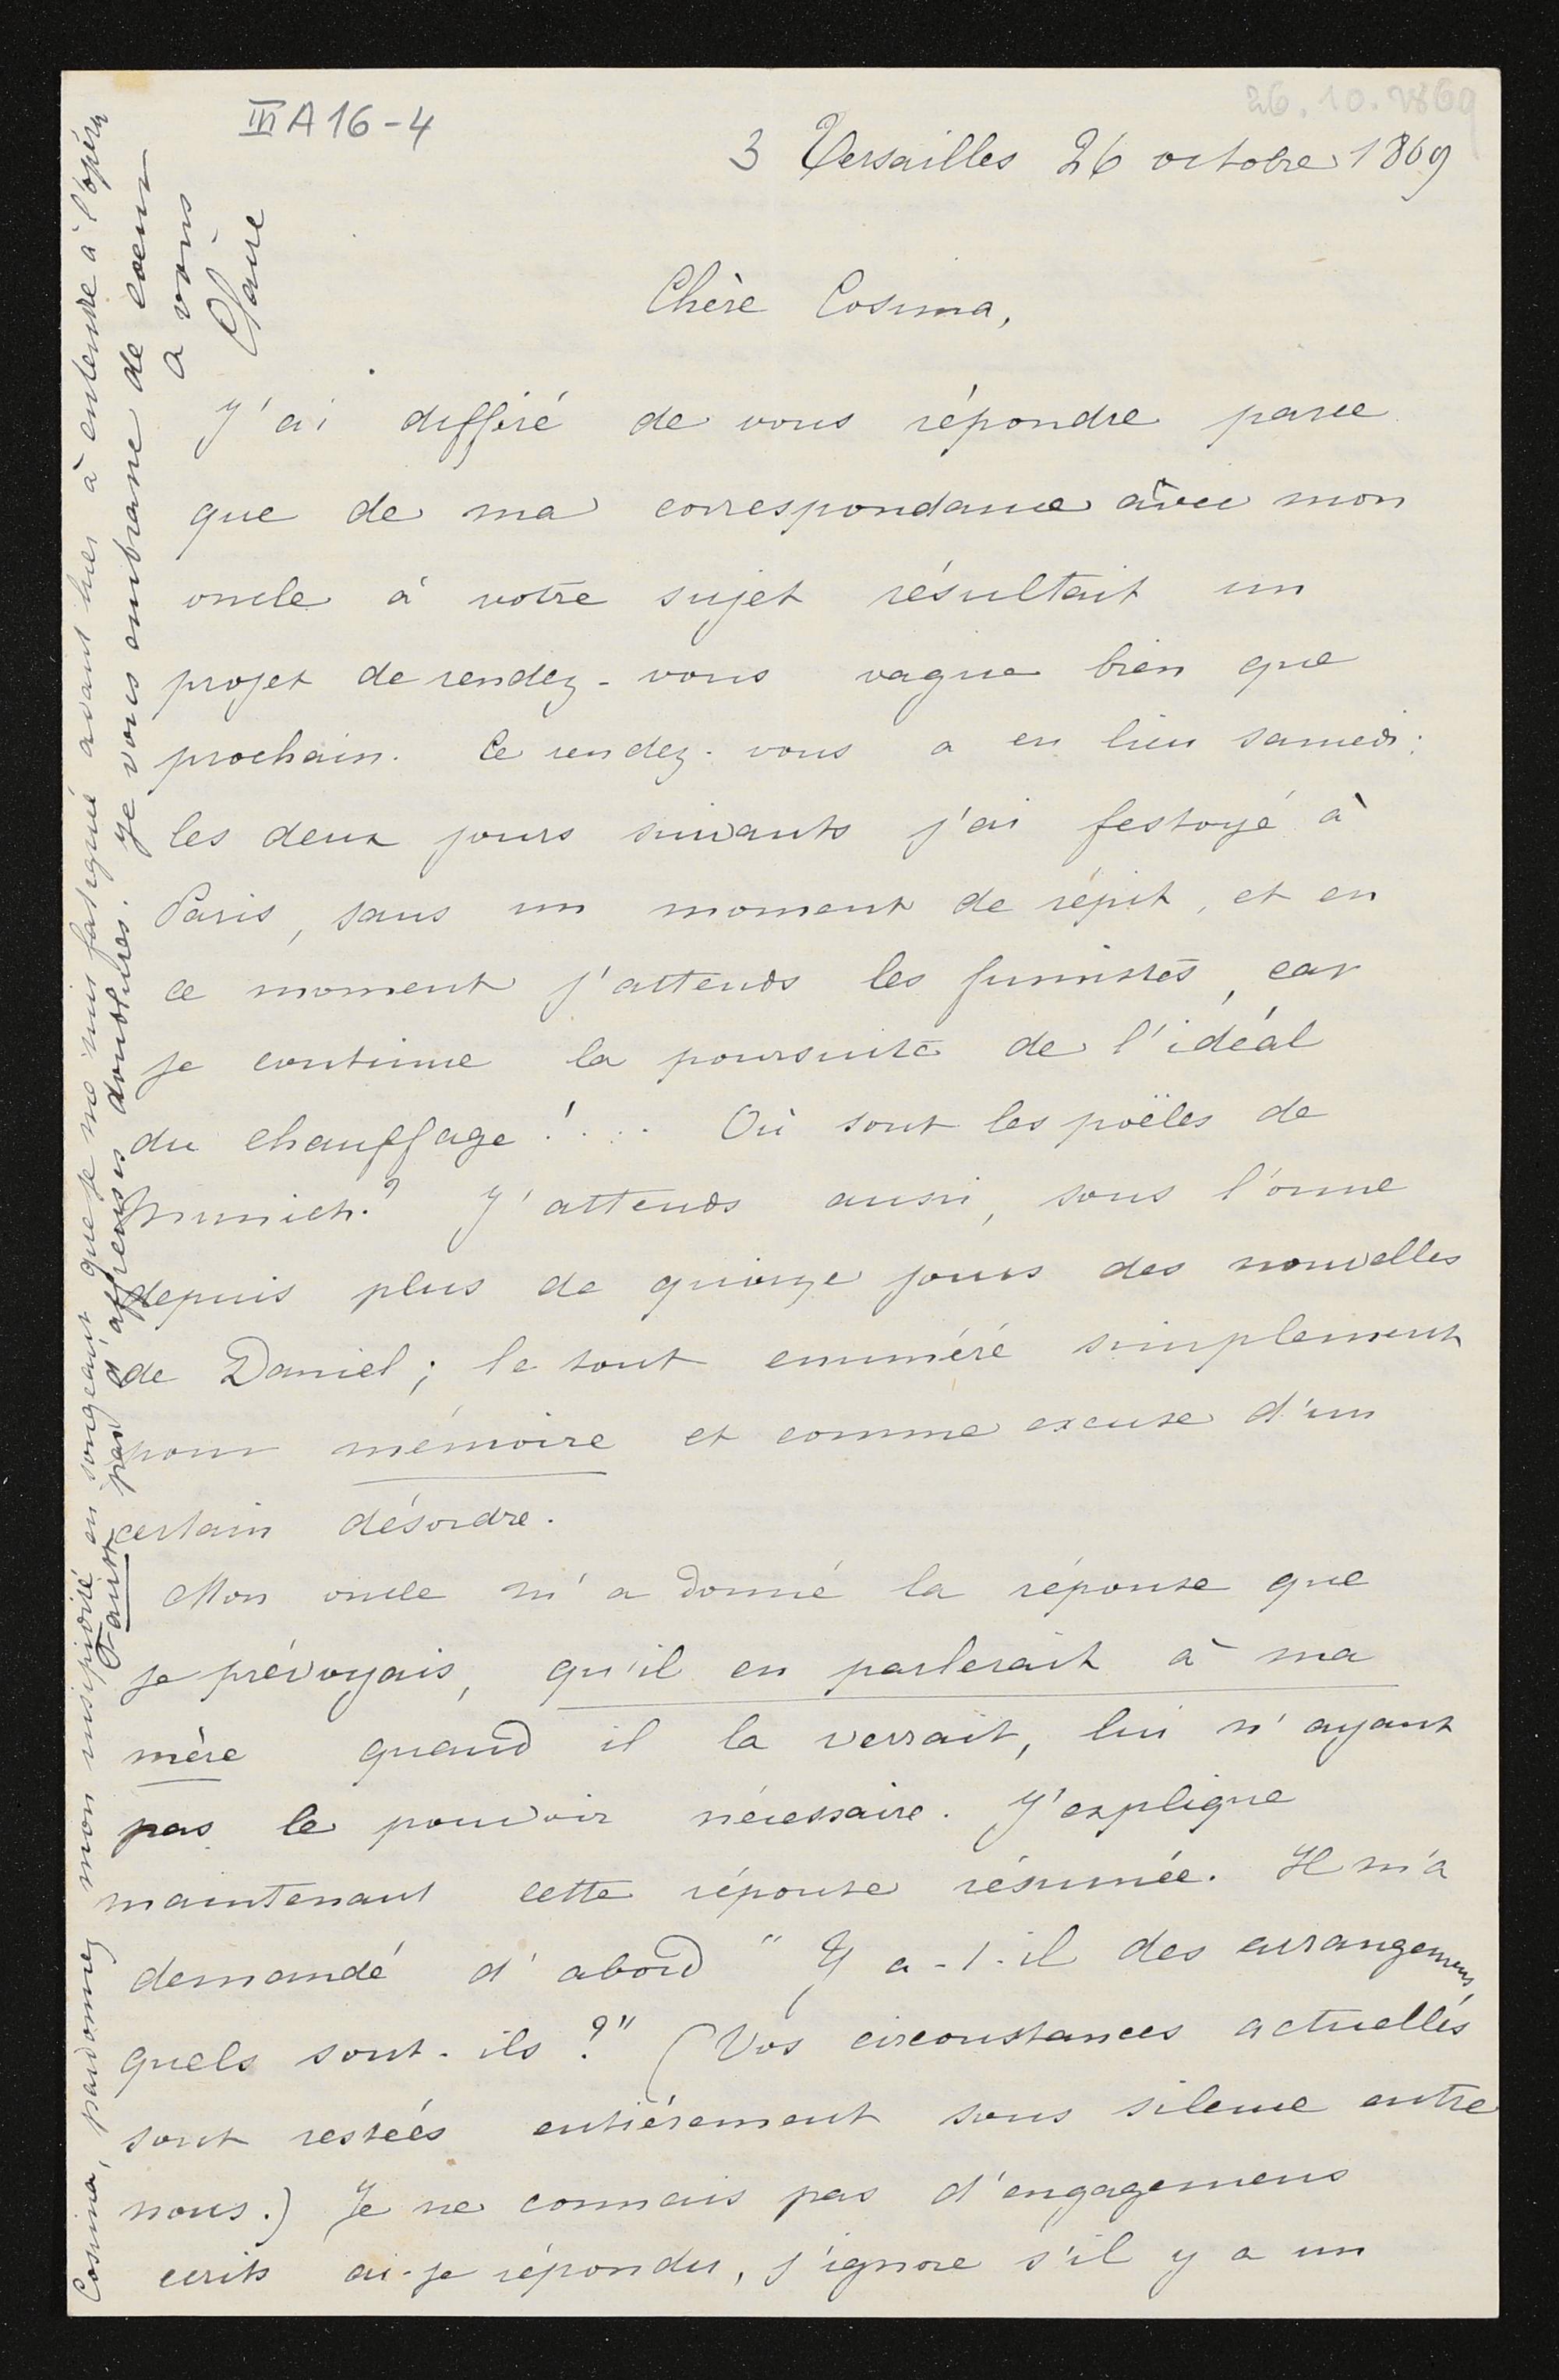 III A 16-4
26.10.1869
3 Versailles 26 octobre 1869
Chère Cosima,
J'ai différé de vous répondre parce
que de ma correspondance avec mon
oncle à votre sujet résultait un
projet de rendez-vous vague bien que
prochain. Ce rendez-vous a eu lieu samedi;
les deux jours suivants j'ai festoyé à
Paris, sans un moment de répit, et en
ce moment j'attends les fumistes, car
je continue la poursuite de l'idéal
du chauffage!... Où sont les poëles de
Munich? J'attends aussi, sous l'orme
depuis plus de quinze jours des nouvelles
de Daniel; le tout enuméré simplement
pour mémoire et comme excuse d'un
certain désordre.
Mon oncle m'a donné la réponse que
je prévoyais, qu'il en parlerait à ma
mère quand il la verrait, lui n'ayant
pas le pouvoir nécessaire. J'explique
maintenant cette réponse résumée. Il m'a
demandé d'abord "Y a-t-il des arrangemens,
quels sont-ils?" (Vos circonstances actuelles
sont restées entièrement sous silence entre
nous.) Je ne connais pas d'engagemens
ecrits ai-je répondu, j'ignore s'il y a un
Cosima, pardonnez mon insipidité en songeant que je me suis fatigué avant hier à entendre à l'opéra
Faust par d'affreuses doublures. Je vous embrasse de coeur
a vous
Claire